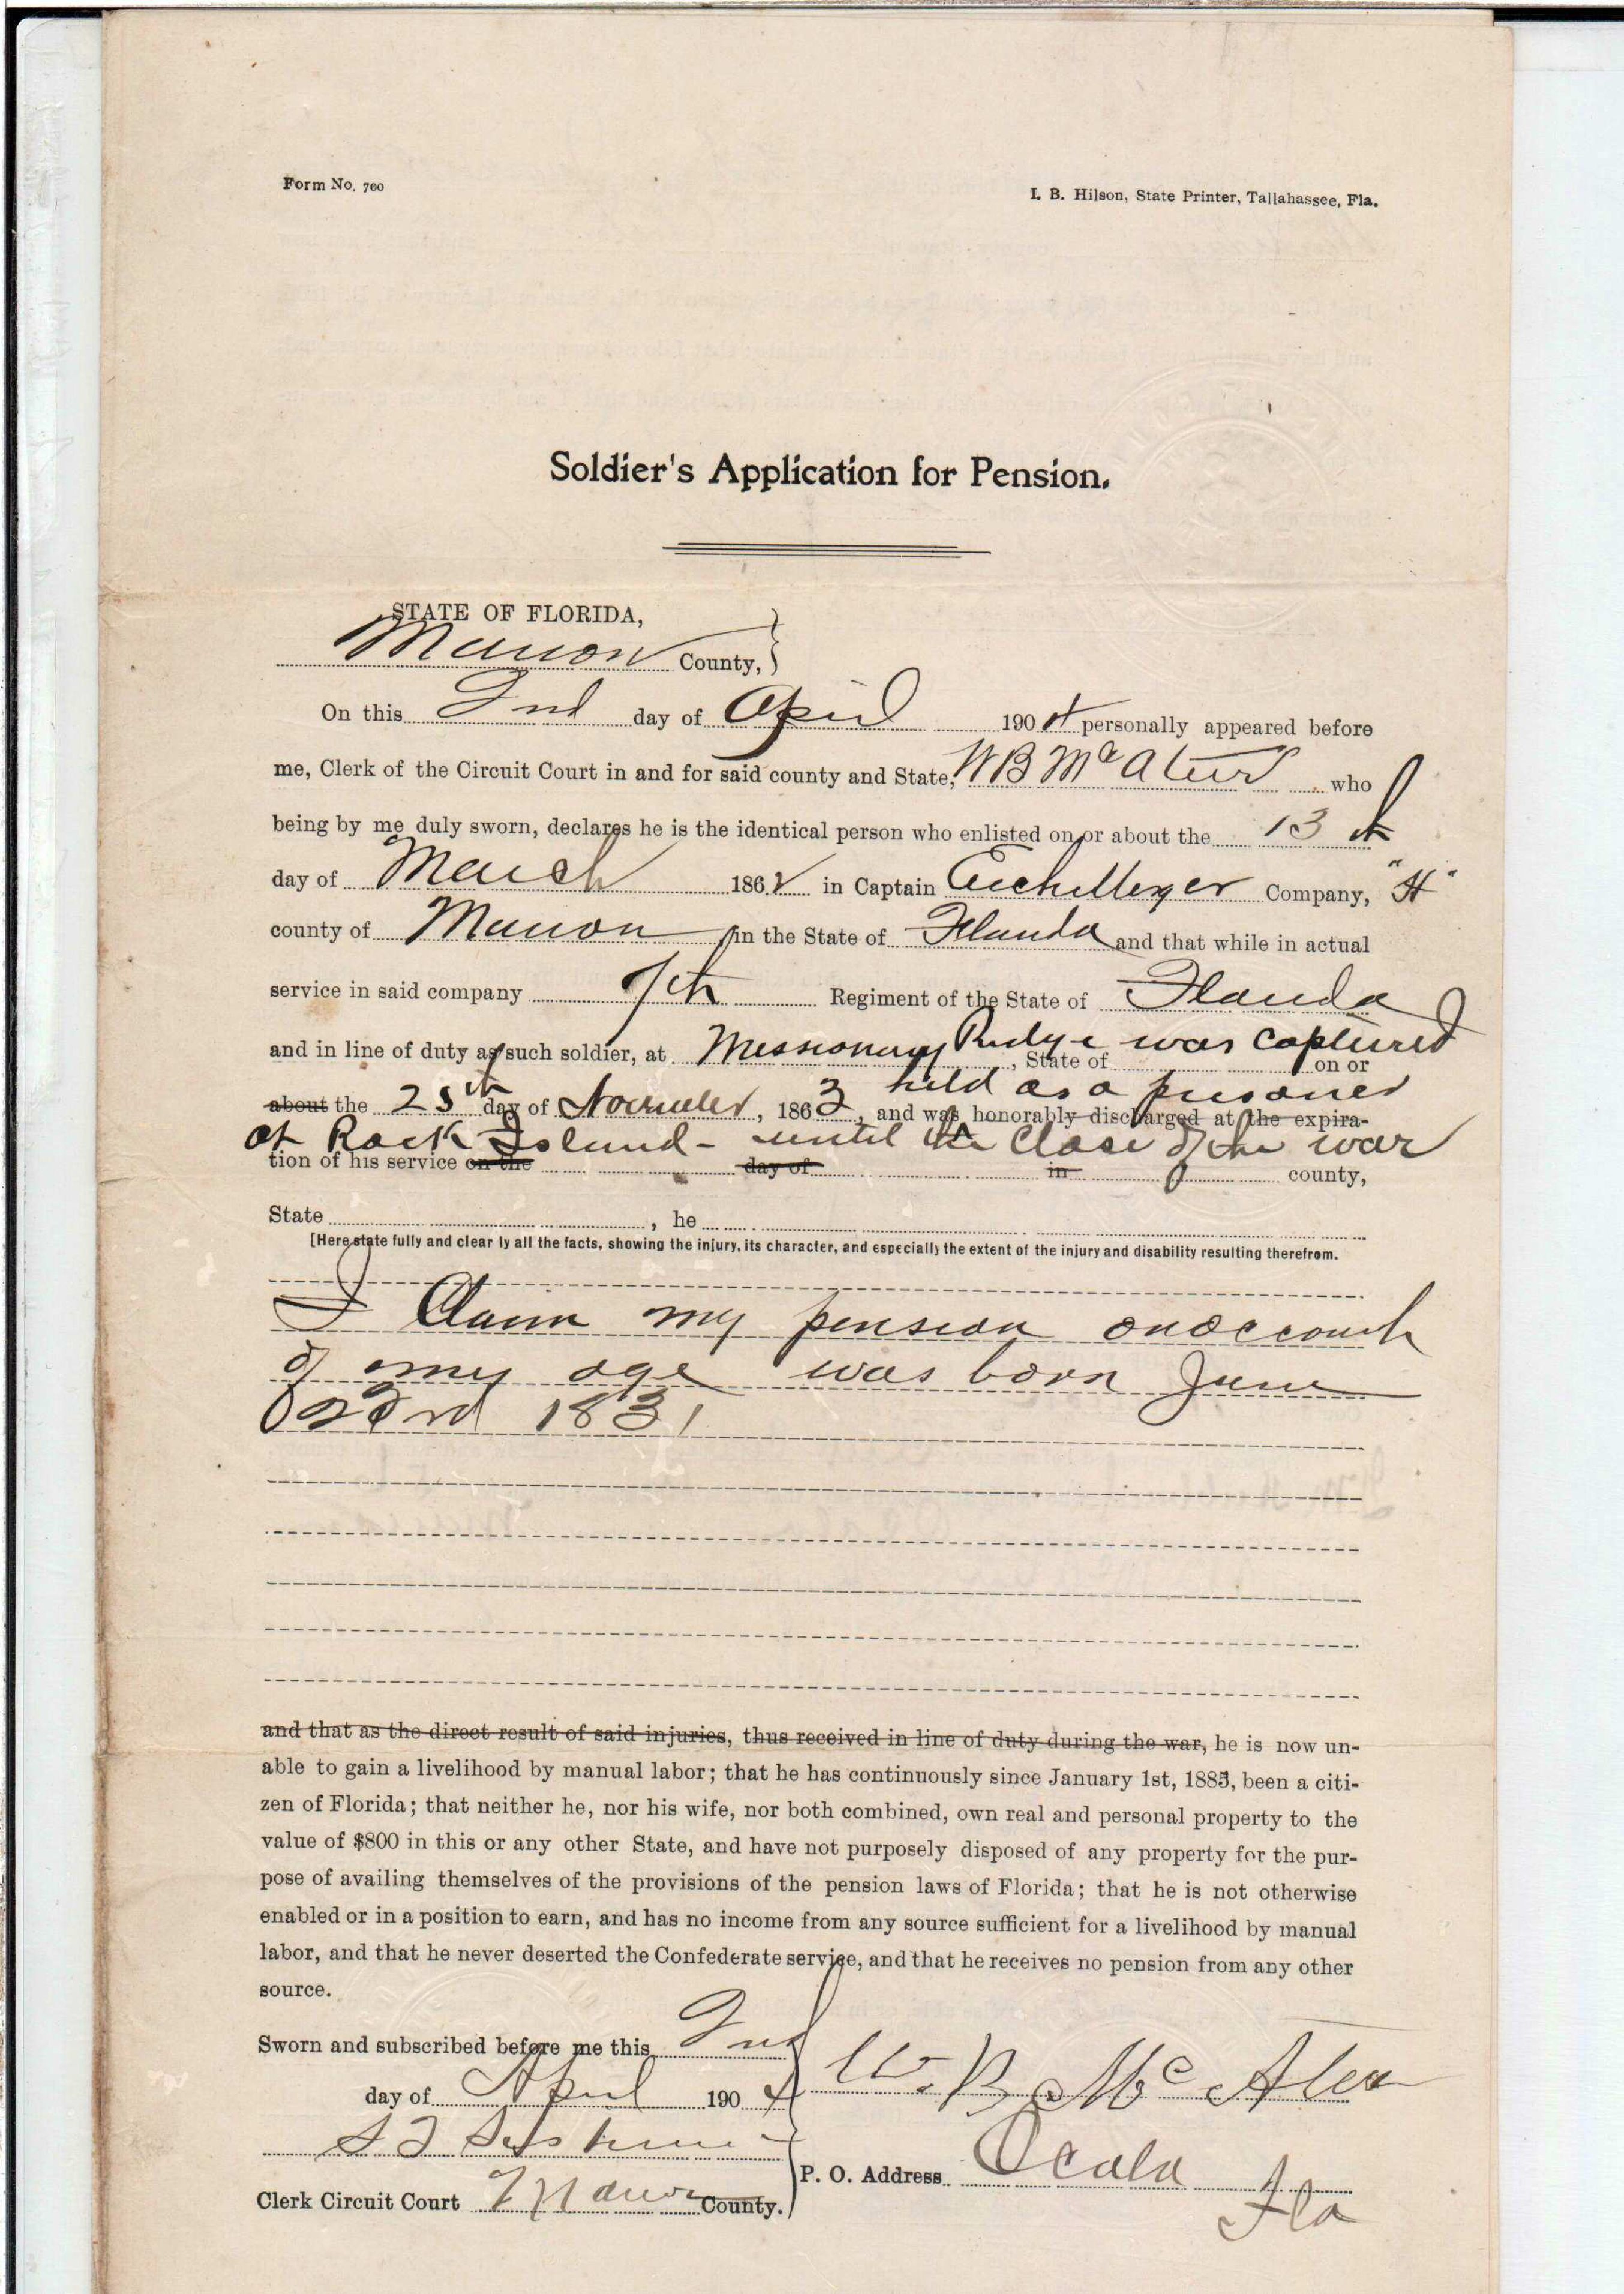 Form No. 700
I. B. Hilson, State Printer, Tallahassee, Fla.
Soldier's Application for Pension.
STATE OF FLORIDA,
Marion County,
On this 2nd day of April 1904 personally appeared before
me, Clerk of the Circuit Court in and for said county and State, W B McAteer who
being by me duly sworn, declares he is the identical person who enlisted on or about the 13th
day of March 1862 in Captain Eichelberger Company, "H"
county of Marion in the State of Florida and that while in actual
service in said company 7th Regiment of the State of Florida
and in line of duty as such soldier, at Missionary Ridge was captured, State of on or
about the 25th day of November, 1863 held as a prisoner, and was honorably discharged at the expira-
at Rock Island - until the close of the war
tion of his service on the day of in county,
State , he
[Here state fully and clearly all the facts, showing the injury, its character, and especially the extent of the injury and disability resulting therefrom.
I Claim my pension on account
of my age was born June
23rd 1831
and that as the direct result of said injuries, thus received in line of duty during the war, he is now un-
able to gain a livelihood by manual labor; that he has continuously since January 1st, 1885, been a citi-
zen of Florida; that neither he, nor his wife, nor both combined, own real and personal property to the
value of $800 in this or any other State, and have not purposely disposed of any property for the pur-
pose of availing themselves of the provisions of the pension laws of Florida; that he is not otherwise
enabled or in a position to earn, and has no income from any source sufficient for a livelihood by manual
labor, and that he never deserted the Confederate service, and that he receives no pension from any other
source.
Sworn and subscribed before me this 2nd
day of April 1904
W. B. McAteer
S T Sistrunk
P. O. Address Ocala
Fla
Clerk Circuit Court Marion County.